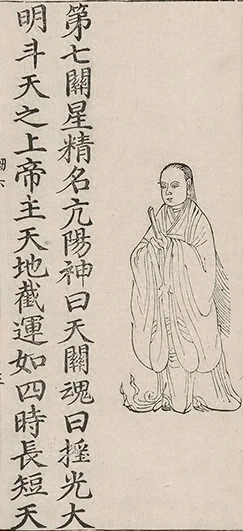 第七關星精名亢陽神曰天關魂曰搖光大
明斗天之上帝主天地截運如四時長短天